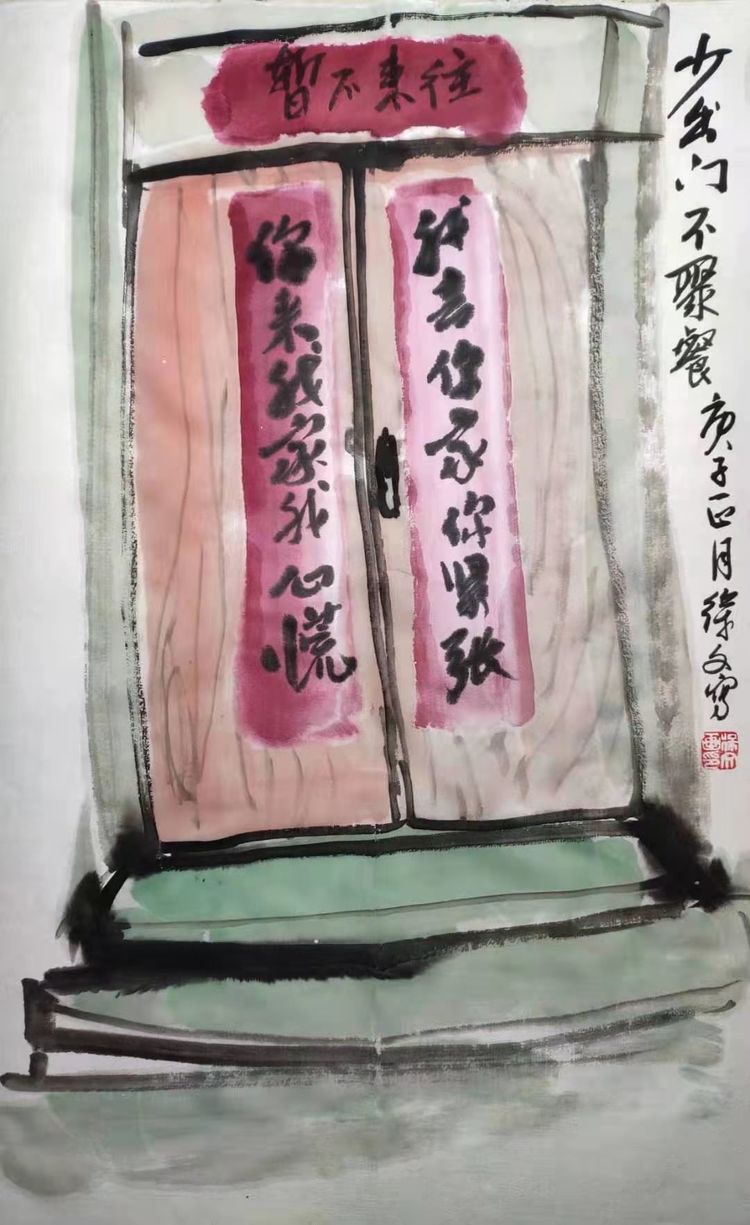 暂不来往
我去你家你紧张
你来我家我心慌
少出门不聚餐 庚子正月徐文写